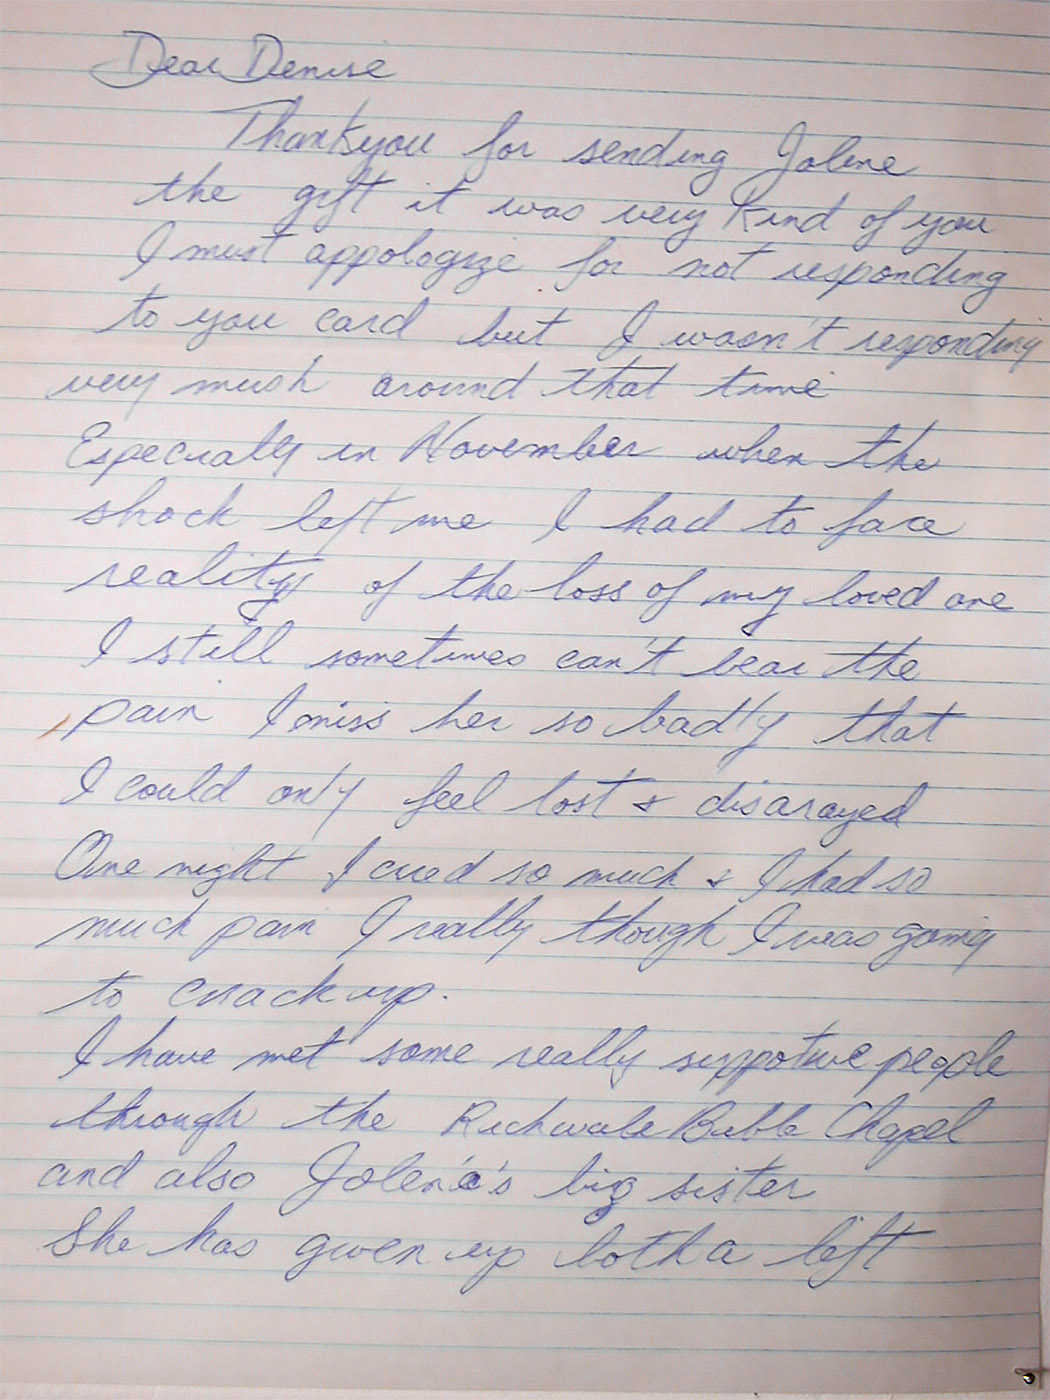 Dear Denise
Thankyou for sending Jolene
the gift it was very kind of you
I must appologize for not responding
to you card but I wasn't responding
very mush around that time
Especially in November when the
shock left me I had to face
reality of the loss of my loved one
I still sometimes can't bear the
pain I miss her so badly that
I could only feel lost & disarayed
One night I cried so much & I had so
much pain I really though I was going
to crack up.
I have met some really suppotive people
through the Bible Chapel
and also Jolene's big sister
She has given up both a left